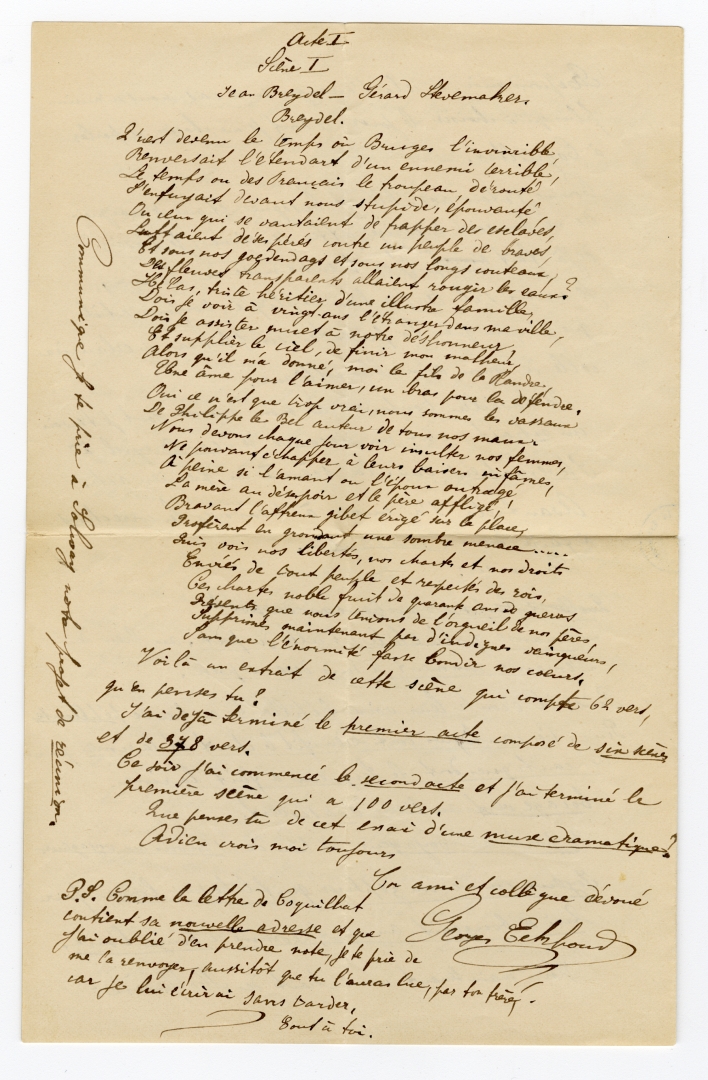 Acte I
Scène I
Jean Breydel — Gérard
Breydel.
Qu'est devenu le temps où Bruges l'invincible
Renversait l'étendart d'un ennemi terrible,
Le temps ou des Français le troupeau dérouté
S'enfuyait devant nous stupide, épouvanté
Ou ceux qui se vantaient de frapper des esclaves,
Luttaient désespérés contre un peuple de braves,
Et sous nos goedendags et sous nos longs couteaux,
Des fleuves transparents allaient rougir les eaux?
Hélas, triste héritier d'une illustre famille,
Dois je voir à vingt ans l'étranger dans ma ville,
Dois je assister muet à notre déshonneur,
Et supplier le ciel, de finir mon malheur,
Alors qu'il m'a donné, moi le fils de la Flandre,
Une âme pour l'aimer, un bras pour la défendre.
Oui ce n'est que trop vrai, nous sommes les vassaux
De Philippe le Bel auteur de tous nos maux
Nous devons chaque jour voir insulter nos femmes,
Ne pouvant échapper à leurs baisers infâmes,
A peine si l'amant ou l'époux outragé,
La mère au désespoir et le père affligé,
Bravant l'affreux gibet érigé sur la place,
Profèrent en grondant une sombre menace.....
Puis vois nos libertés, nos chartes et nos droits
Enviés de tout peuple et respectés des rois,
Ces chartes noble fruit de quarante ans de guerres
Présents que nous tenions de l'orgueil de nos pères,
Supprimés maintenant par d'indignes vainqueurs,
Sans que l'énormité fasse bondir nos coeurs.
Voilà un extrait de cette scène qui compte 62 vers,
qu'en penses tu?
J'ai dejà terminé le premier acte composé de six scènes
et de 378 vers.
Ce soir j'ai commencé le second acte et j'ai terminé la
première scène qui a 100 vers.
Que penses tu de cet essai d'une muse dramatique?
Adieu crois moi toujours
Ton ami et collègue dévoué
Georges Eekhoud
P.S. Comme la lettre de Coquilhat
contient sa nouvelle adresse et que
j'ai oublié d'en prendre note, je te prie de
me la renvoyer, aussitôt que tu l'auras lue, par ton frère,
car je lui écrirai sans tarder.
Tout à toi.
Communique je te prie à Solvay notre projet de réunion.